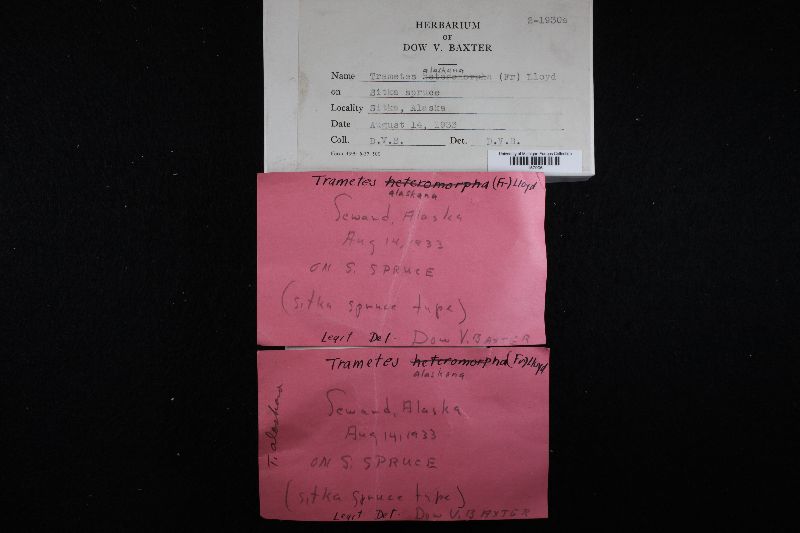 HERBARIUM
OF
DOW V. BAXTER
2-1930s
alaskana
Name Trametes heteromorpha (Fr) Lloyd
on Sitka spruce
Locality Sitka, Alaska
Date August 14, 1933
Coll. D.V.B. Det. D.V.B.
University of Michigan Fungus Collection
Trametes heteromorpha (Fr) Lloyd
alaskana
Seward, Alaska
Aug 14, 1933
ON S. SPRUCE
(sitka spruce type)
Legit Det- Dow V. BAXTER
Trametes heteromorpha (Fr) Lloyd
alaskana
T. alaskana
Seward, Alaska
Aug 14, 1933
ON S. SPRUCE
(sitka spruce type)
Legit Det- Dow V. BAXTER